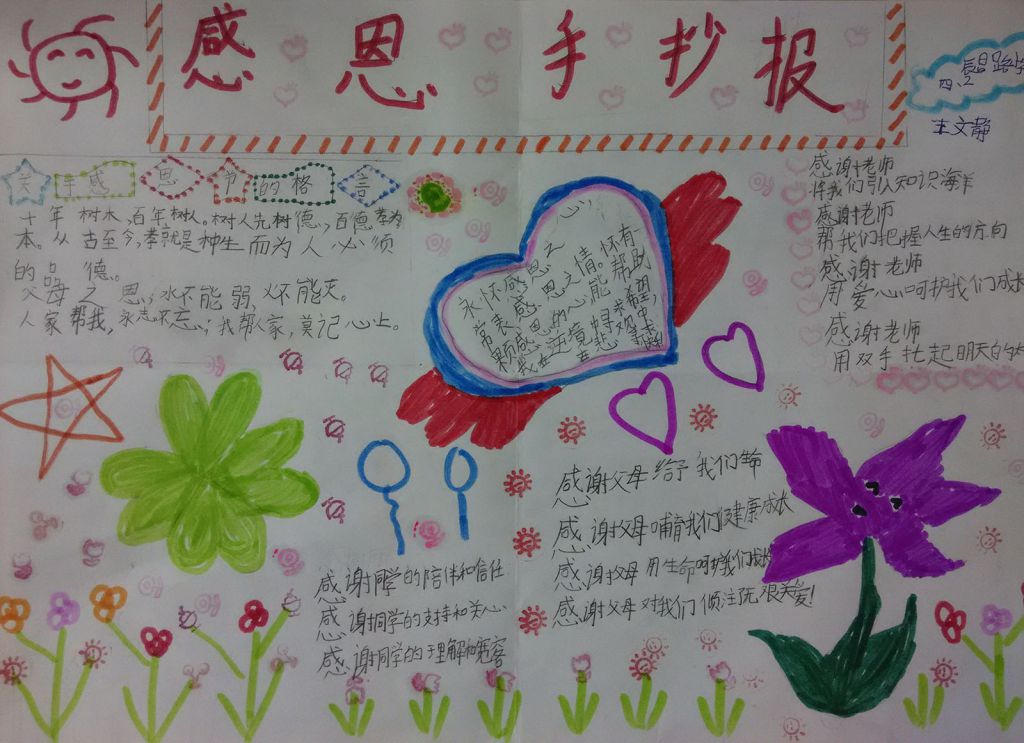 感恩手抄报
昌路学
四.2
王文静
关于感恩节的格言
十年树木,百年树人。树人先树德,百德孝为
本。从古至今,孝就是种生而为人必须
的品德。
父母之恩,水不能弱,火不能灭。
人家帮我,永志不忘;我帮人家,莫记心上。
永怀感恩之心,
常表感恩之情。怀有一
颗感恩的心,能帮助
我在逆境中寻求希望,
在悲观中
感谢老师
伴我们引知识海洋
感谢老师
帮我们把握人生的方向
感谢老师
用爱心呵护我们成长
感谢老师
用双手托起明天的
感谢父母给予我们生命
感谢父母哺育我们健康成长
感谢父母用生命呵护我们成长
感谢父母对我们倾注无限关爱!
感谢同学的陪伴和信任
感谢同学的支持和关心
感谢同学的理解和宽容